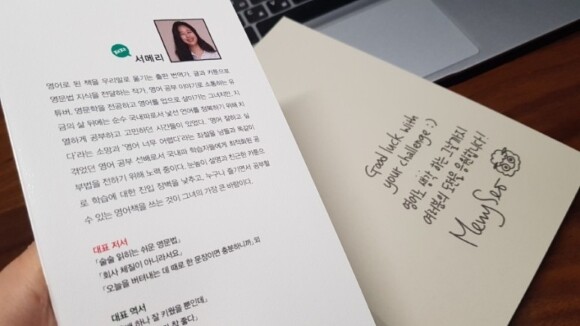 서메리
영어로 된 책을 우리말로 옮기는 출판 번역가, 글과 카툰으로
영문법 지식을 전달하는 작가, 영어 공부 이야기로 소통하는 유
튜버. 영문학을 전공하고 영어를 업으로 살아가는 그녀지만, 지
금의 실력 뒤에는 순수 국내파로서 낯선 언어를 정복하기 위해 치
열하게 공부하고 고민하던 시간들이 있었다. '영어 잘하고 싶
다'라는 소망과 '영어 너무 어렵다'라는 좌절을 남들과 똑같이
겪었던 영어 공부 선배로서 국내파 학습자들에게 최적화된 공
부법을 전하기 위해 노력 중이다. 눈높이 설명과 친근한 카툰으
로 학습에 대한 진입 장벽을 낮추고, 누구나 즐기면서 공부할
수 있는 영어책을 쓰는 것이 그녀의 가장 큰 바람이다.
대표 저서
『술술 읽히는 쉬운 영문법』
『회사 체질이 아니라서요』
『오늘을 버텨내는 데 때로 한 문장이면 충분하니까』 외
대표 역서
하나 잘 키웠을 뿐인데』
Good luck with
your challenge :)
영어로 말하는 그날까지
여러분의 도전을 응원합니다!
Merry Seo